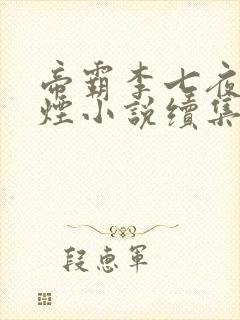 帝霸李七夜
煙小說續集
段惠軍